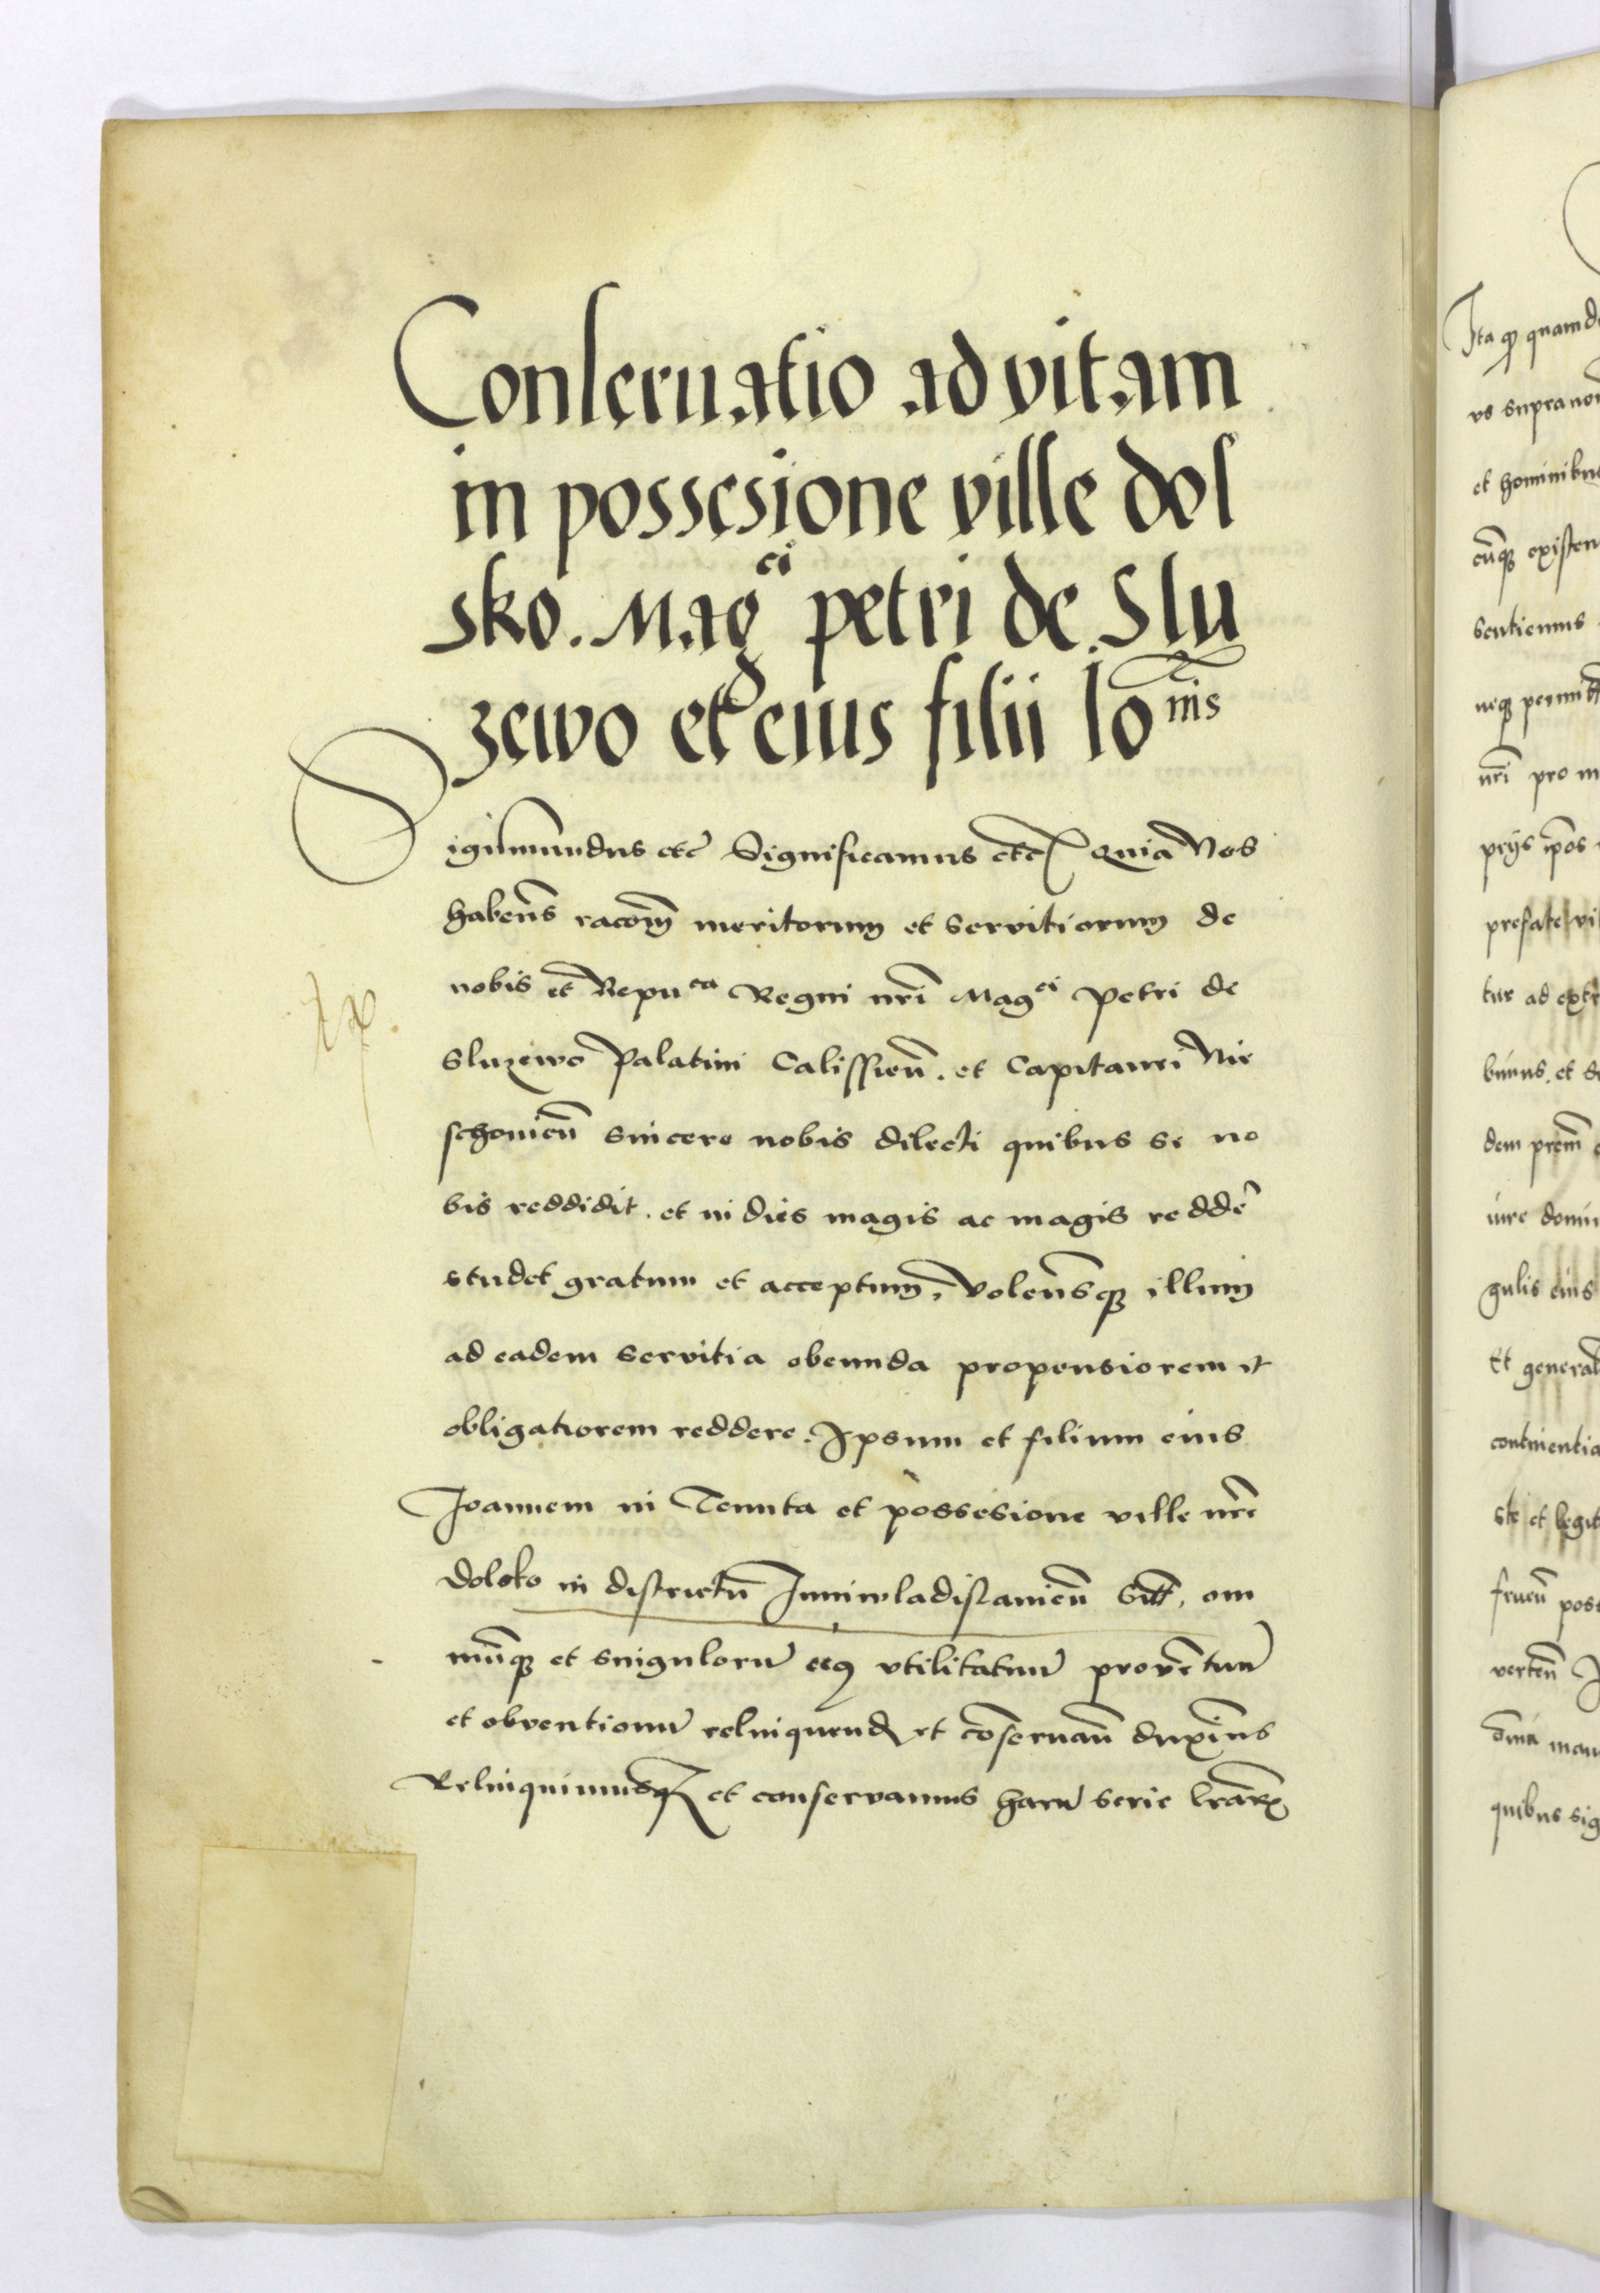 Conseruatio ad vitam
in possesione ville dol
sko. Mag^ci petri de Slu
zewo et eius filii Io^nis
Sigismundus etc̃ Significamus etc̃ Quia Nos
habeñs racõm meritorum et servitiorum de
nobis et Repu^ca Regni nr̃i Mag^ci Petri de
Sluzewo Palatini Calissieñ. et Capitanei Me
schoniceñ sincere nobis dilecti quibus se no
bis reddidit. et in dies magis ac magis redder̃
studet gratum et acceptum, Volensq̃ illum
ad eadem servitia obeunda propensiorem et
obligatiorem reddere. Ipsum et filium eius
Joannem in Tenuta et possesione ville nr̃e
Dolsko in districtũ Juniwladislauieñ Sitt̃, om
niũq̃ et singulorũ eius vtilitatum proventuum
et obventionũ relinquend̃ et cõseruañ duximus
Relinquimusq̃ et conservamus harũ serie lr̃arũ
Ita q̃ quamd
vs supranom
et hominibu
cũq̃ existen
sentiemus
neq̃ permitt
nr̃i pro m
prijs ip̃os
prefate vi
tur ad extr
bimus. et
dem pr̃em
iure domi
gulis eius
Et general
continentia
ste et legit
frueñ pos
verteñ
om̃ia man
quibus sig